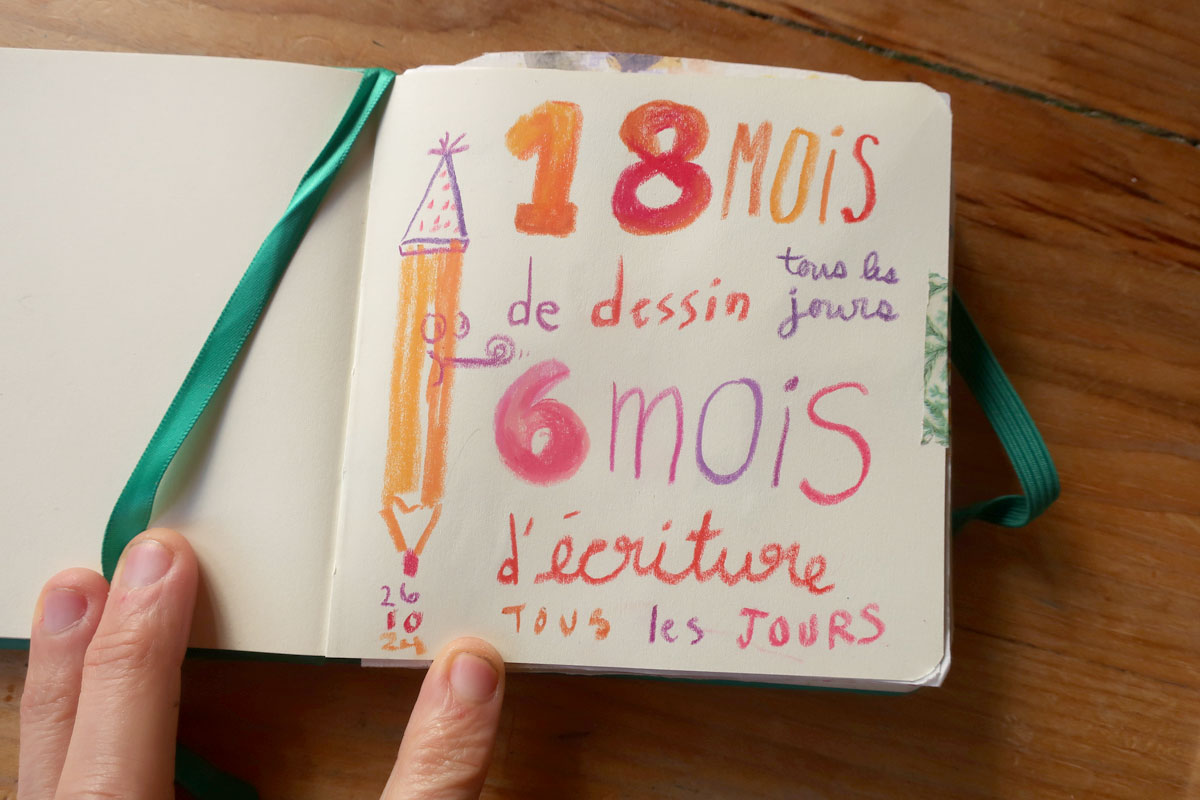 18 MOiS
de dessin tous les
jours
6 mOiS
d'écriture
TOUS les JOURS
26
10
24